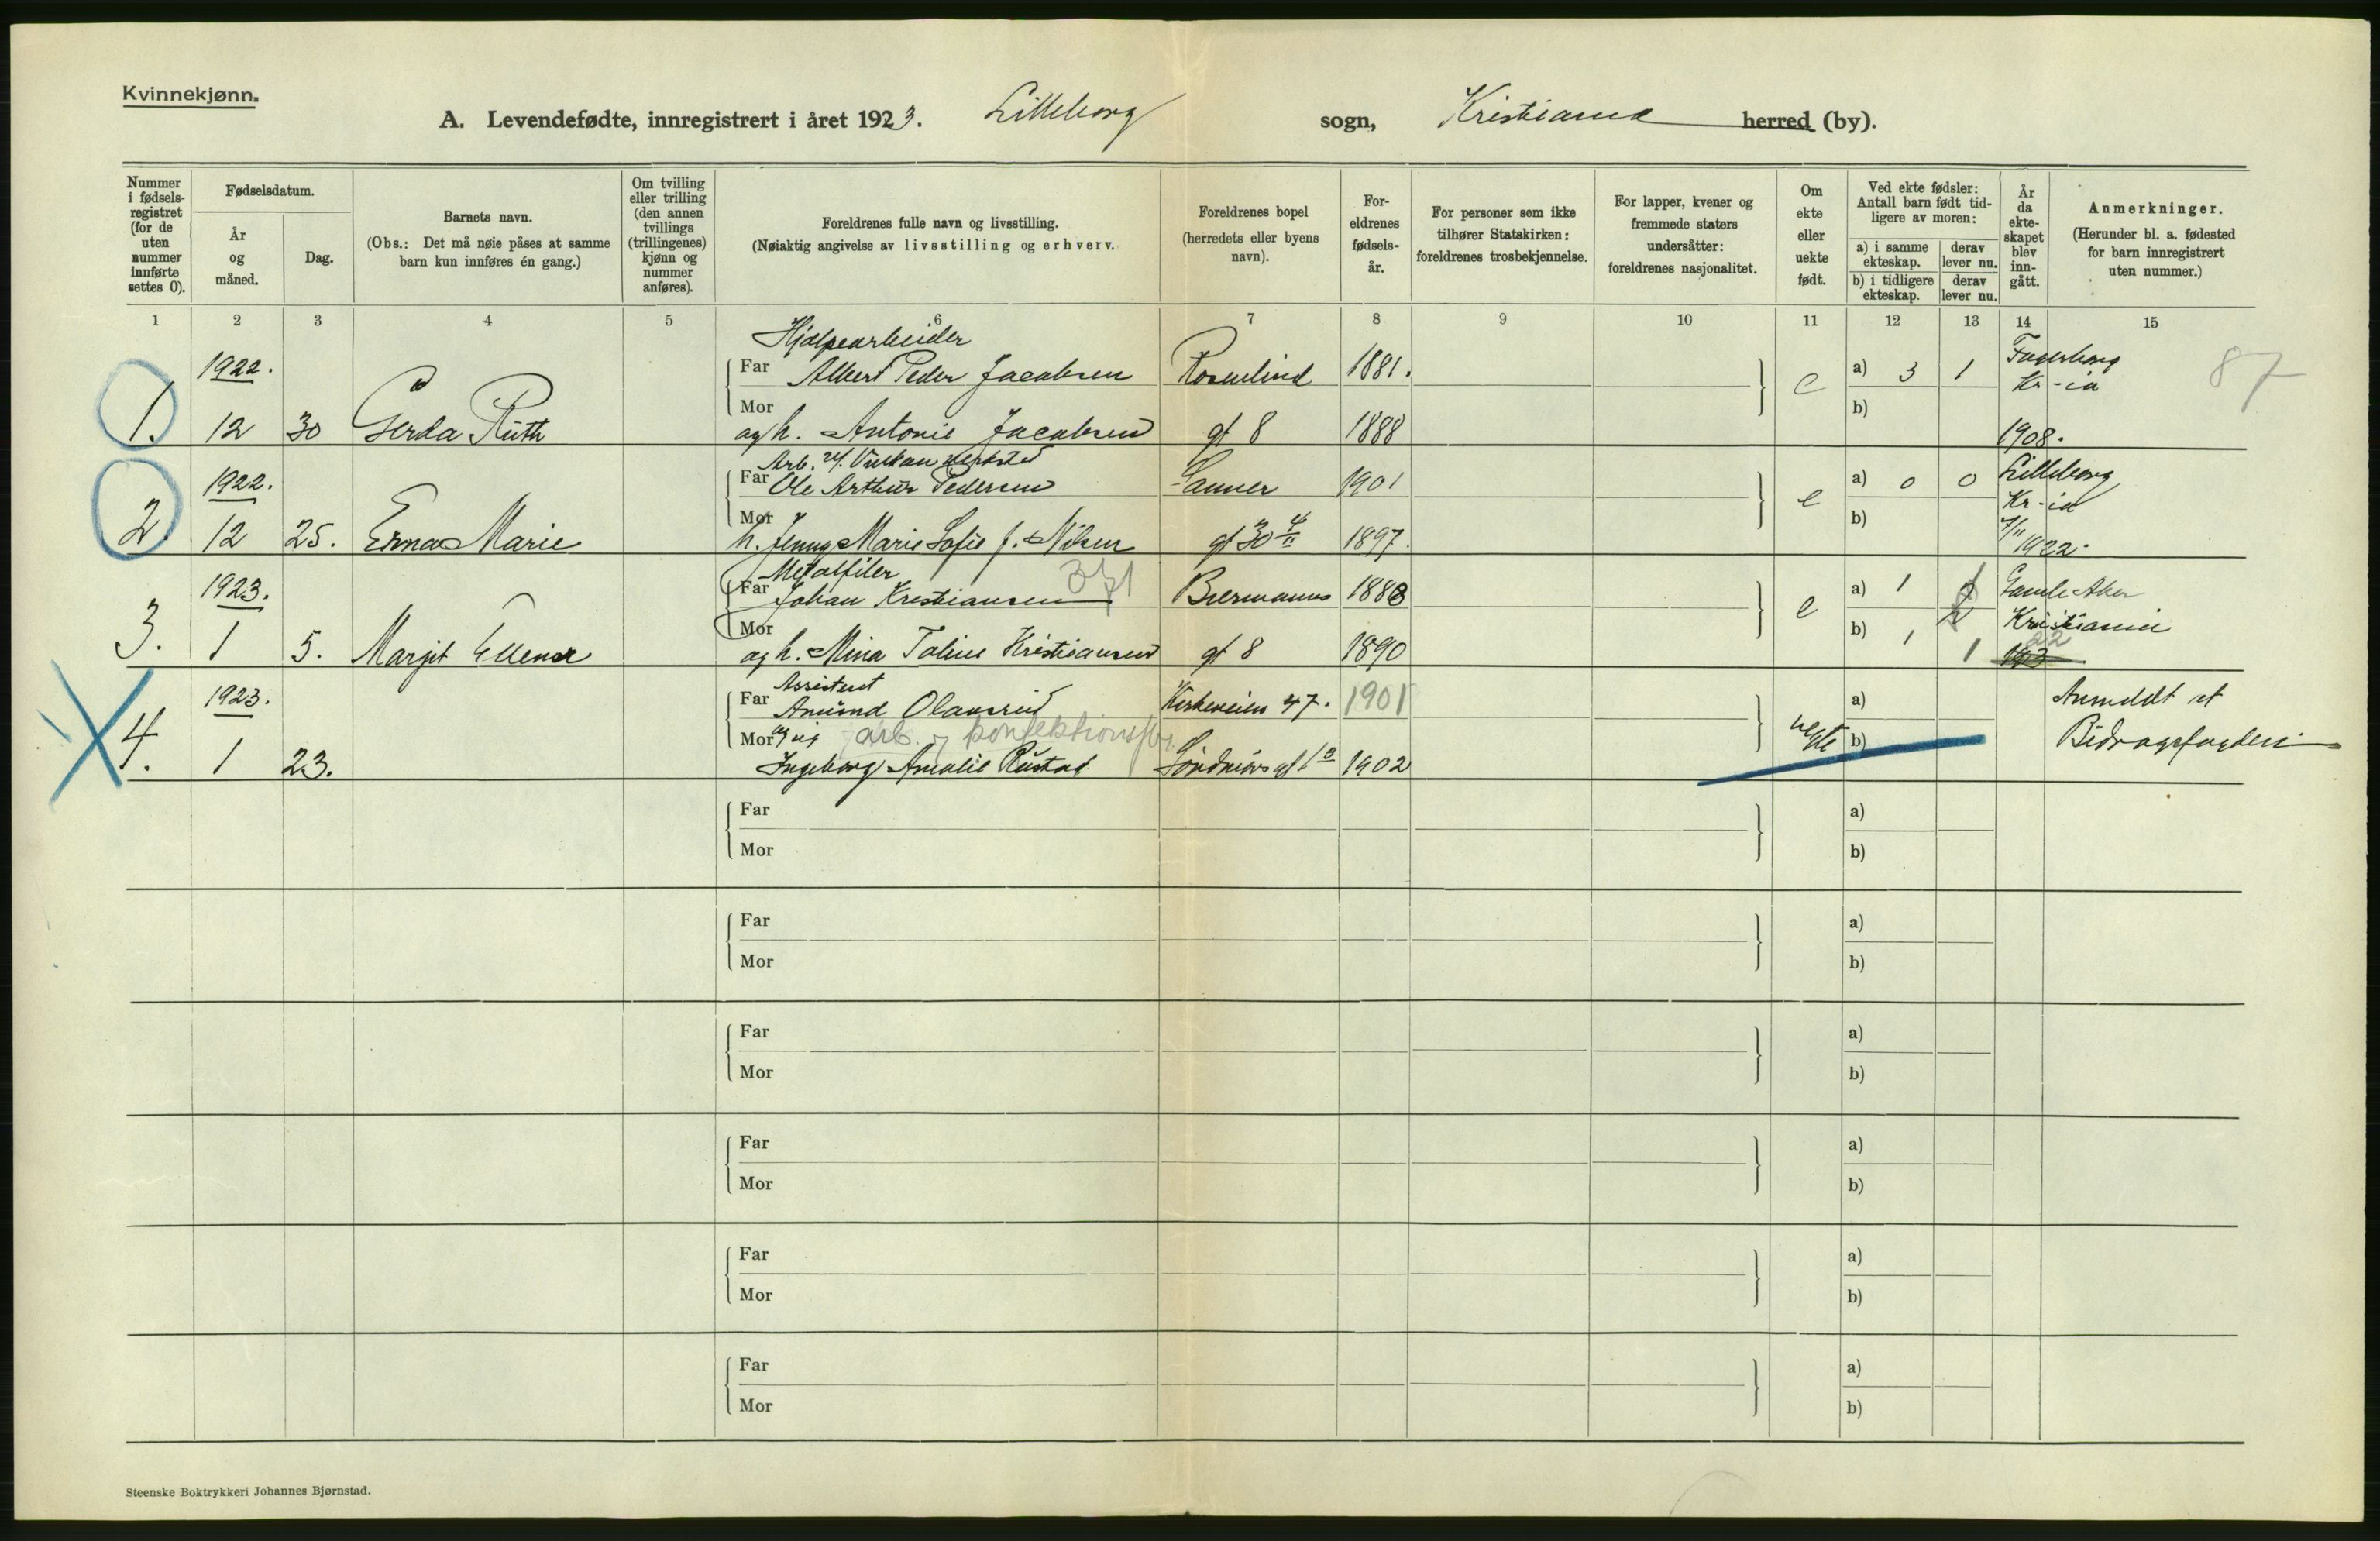 Kvinnekjønn.
A. Levendefødte, innregistrert i året 1923. Lilleborg sogn, Kristiania herred (by).
Nummer i fødsels-registret (for de uten nummer innførte settes 0).
Fødselsdatum.
År og måned.
Dag.
Barnets navn.
(Obs.: Det må nøie påses at samme barn kun innføres én gang.)
Om tvilling eller trilling (den annen tvillings (trillingenes) kjønn og nummer anføres).
Foreldrenes fulle navn og livsstilling.
(Nøiaktig angivelse av livsstilling og erhverv.
Foreldrenes bopel (herredets eller byens navn).
For-eldrenes fødsels-år.
For personer som ikke tilhører Statskirken: foreldrenes trosbekjennelse.
For lapper, kvener og fremmede staters undersåtter: foreldrenes nasjonalitet.
Om ekte eller uekte født.
Ved ekte fødsler: Antall barn født tid-ligere av moren:
a) i samme ekteskap.
derav lever nu.
b) i tidligere ekteskap.
derav lever nu.
År da ekte-skapet blev inn-gått.
Anmerkninger.
(Herunder bl. a. fødested for barn innregistrert uten nummer.)
1 2 3 4 5 6 7 8 9 10 11 12 13 14 15
Hjælpearbeider
1922. Far Albert Peder Jacobsen Rosenlind 1881. a) 3 1 Fagerborg Kr-ia 87
Mor b)
1. 12 30 Gerda Ruth og h. Antonie Jacobsen gt 8 1888 e 1908.
Arb. v/ Vulkan verksted
1922. Far Ole Arthur Pedersen Sanner 1901 a) 0 0 Lilleborg
Mor e b) Kr-ia
2. 12 25. Erna Marie h. Jenny Marie Sofie f. Nilsen gt 30 1897. 7/11 1922.
Metalfiler 371
1923. Far Johan Kristiansen Biermanns 1888 a) 1 Gamle Aker
Mor e b) 1 1 Kristiania
3. 1 5. Margit Ellenor og h. Mina Toline Kristiansen gt 8 1890 22
Assistent
1923. Far Amund Olavsrud Kirkeveien 47. 1901 a) Anmeldt at
Mor og pig arb. konfektionsfbr. uegte b) Bidragsfogden
4. 1 23. Ingeborg Amalie Rustad Søndmørs gt 1902
Far a)
Mor b)
Far a)
Mor b)
Far a)
Mor b)
Far a)
Mor b)
Far a)
Mor b)
Far a)
Mor b)
Steenske Boktrykkeri Johannes Bjørnstad.